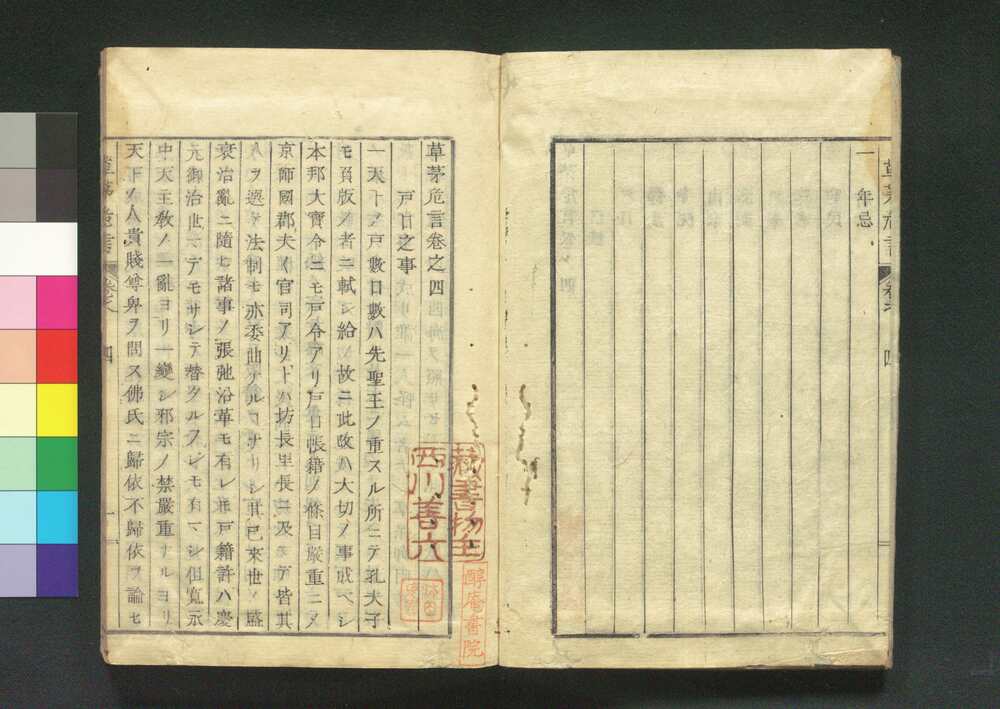 一 年忌
草茅危言 四
草茅危言卷之四
戸口之事
一天下ノ戸數口數ハ先聖王ノ重スル所ニテ孔夫子
モ負版ノ者ニ軾シ給フ故ニ此改ハ大切ノ事成ヘシ
本邦大寶令ニモ戸令アリ戸口帳籍ノ條目嚴重ニメ
京師國郡夫々官司アリ下ハ坊長里長ニ及ヌデ皆其
人ヲ選ミ法制モ亦委曲ナルヿナリシ其已來世ノ盛
衰治亂ニ隨ヒ諸事ノ張弛沿革モ有レ𪜈戸籍許ハ慶
元御治世マデモサシテ替タルヿモ有マシ但寛永
中天主敎ノ一亂ヨリ一變シ邪宗ノ禁嚴重ナルヨリ
天下ノ人貴賤尊卑ヲ問ス佛氏ニ歸依不歸依ヲ論セ
草茅危言 四 一
萩書物主
西川善六
醇庵書院